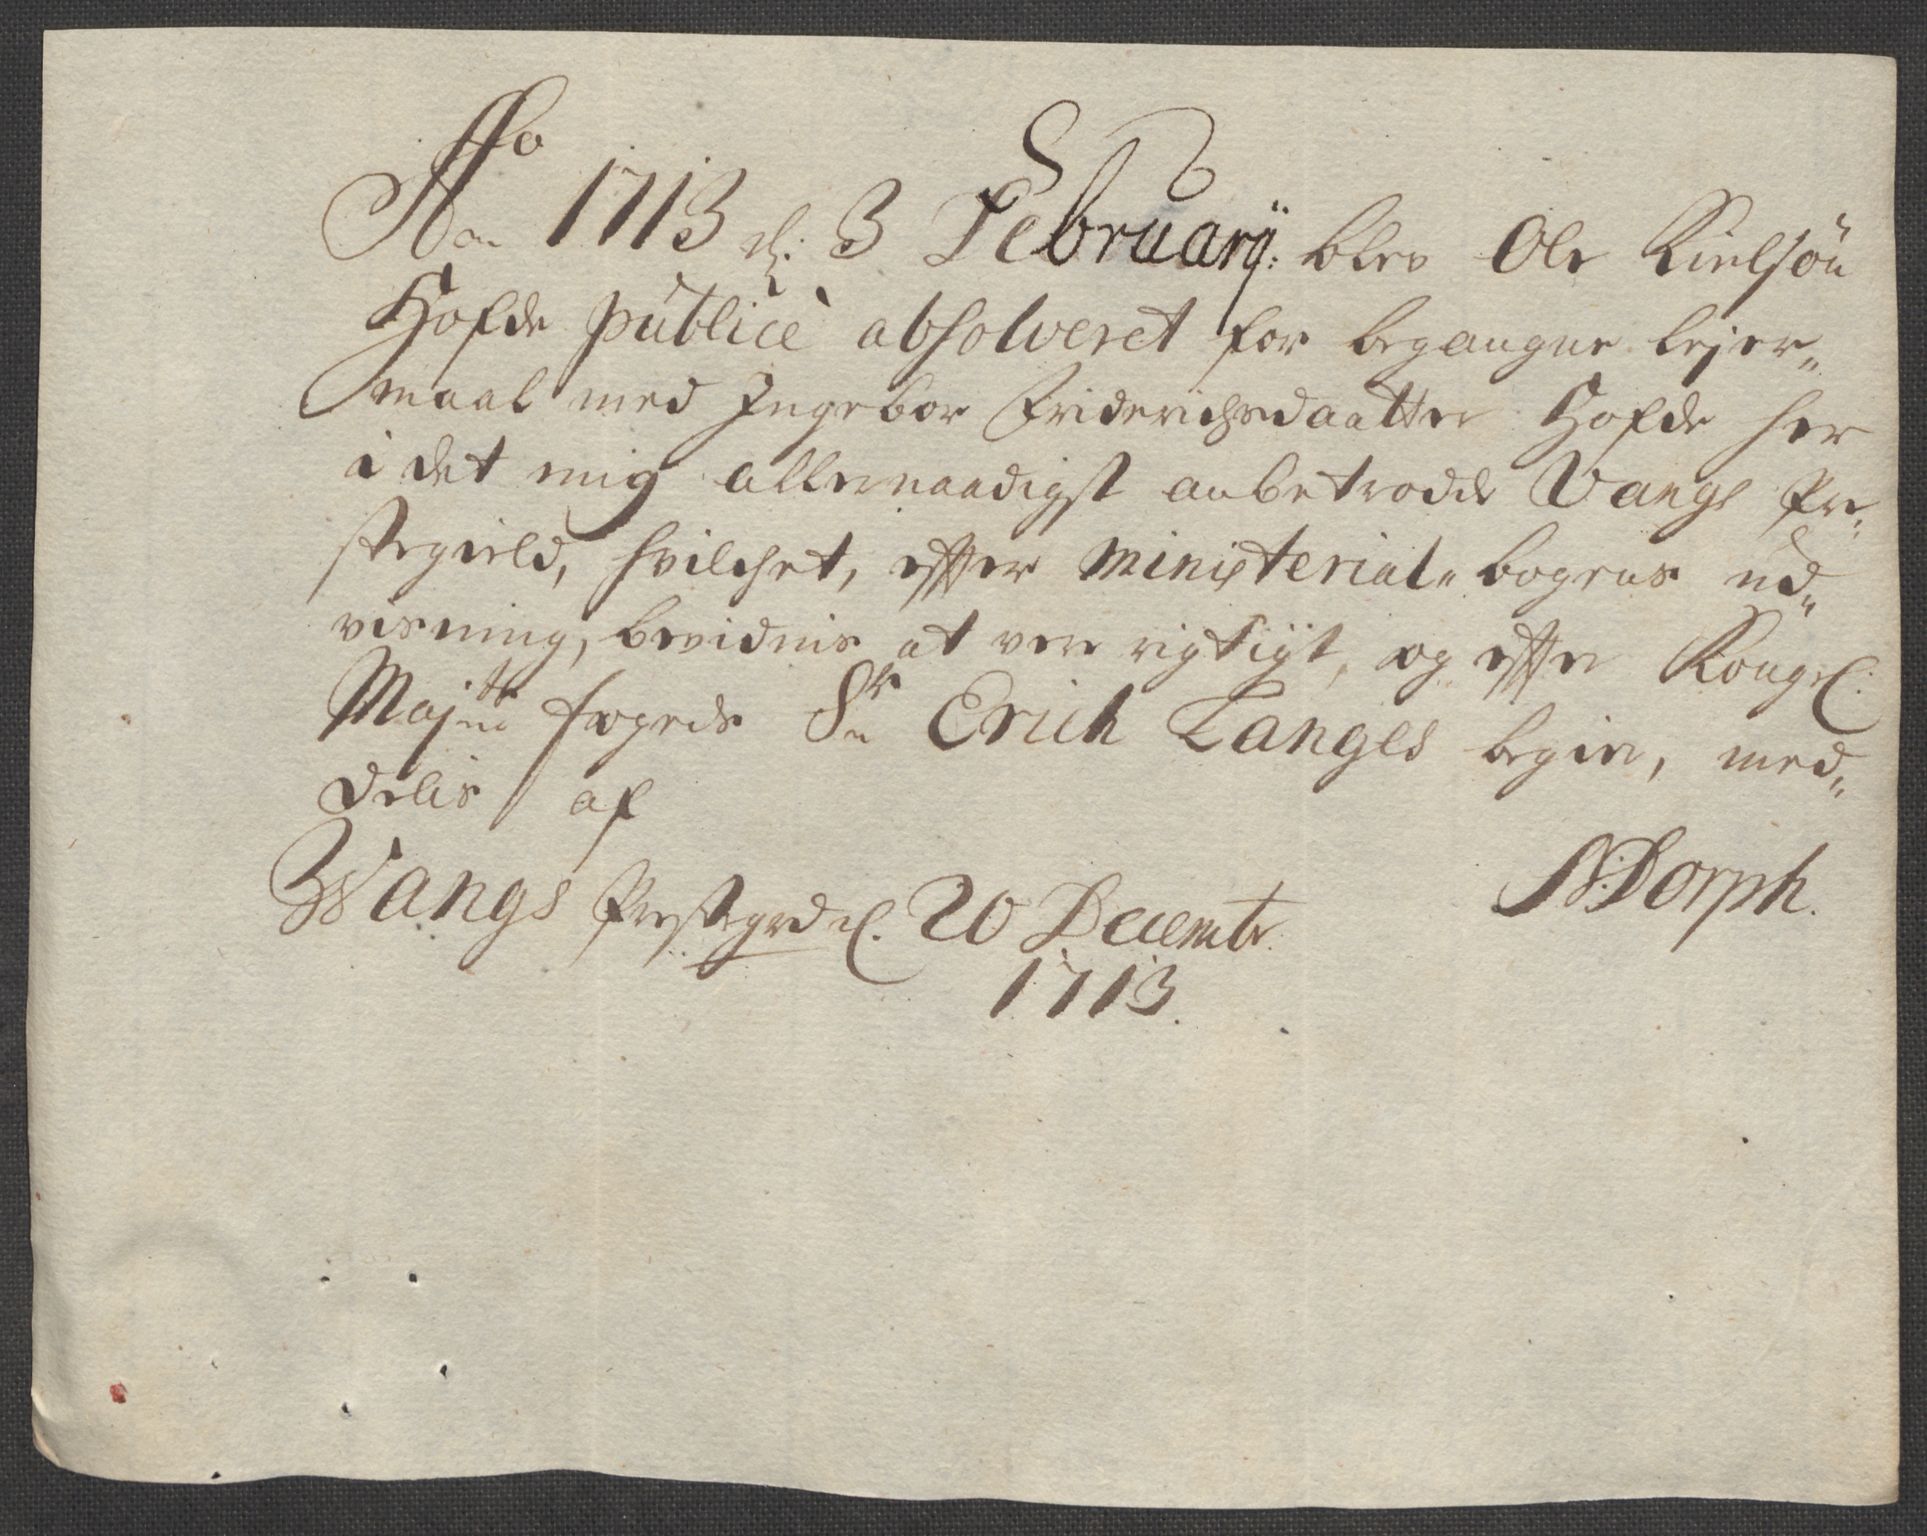 Ao 1713 d. 3 Februarij: blev Ole Kielsøn
Hofde publicè absolveret for begangne lejer„
maal med Ingebor Friderichsdaatter Hofde her
i det mig allernaadigst anbetrodde Vangs Pre„
stegield, hvilchet, effter Ministerial„bogens ud„
visning, bevidnis at vere rigtigt, og effter Kongel.
Maj:ts fogeds Sr Erich Langes begier, med„
delis af
Wangs Prestegrd d. 20 Decembr.
1713.
N: Dorph.